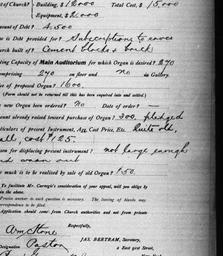 of Church? Building, $12000 Total Cost, $15,000
Equipment, $3,000
ount of Debt? 4,500
w is Debt provided for? Subscriptions to cover
urch built of? Cement blocks & brick
ting Capacity of Main Auditorium for which Organ is desired? 270
omprising 270 on floor and no in Gallery.
e of proposed Organ? 1600.
(Form should not be returned till this has been inquired into and settled.)
new Organ been ordered? No Date of order
ount already raised toward purchase of Organ? 300. pledged
rticulars of present Instrument, Age, Cost Price, Etc. Quite old,
all, cost $125.
son for displacing present instrument? not large enough
nd worn out
much is to be realized by sale of old Organ? 50.
To facilitate Mr. Carnegie's consideration of your appeal, will you oblige by
in the above.
Precise answer to each question is necessary. The leaving of blanks may
correspondence to be filed.
Application should come from Church authorities and not from private
Respectfully,
JAS. BERTRAM, Secretary,
2 East 91st Street,
Designation Pastor